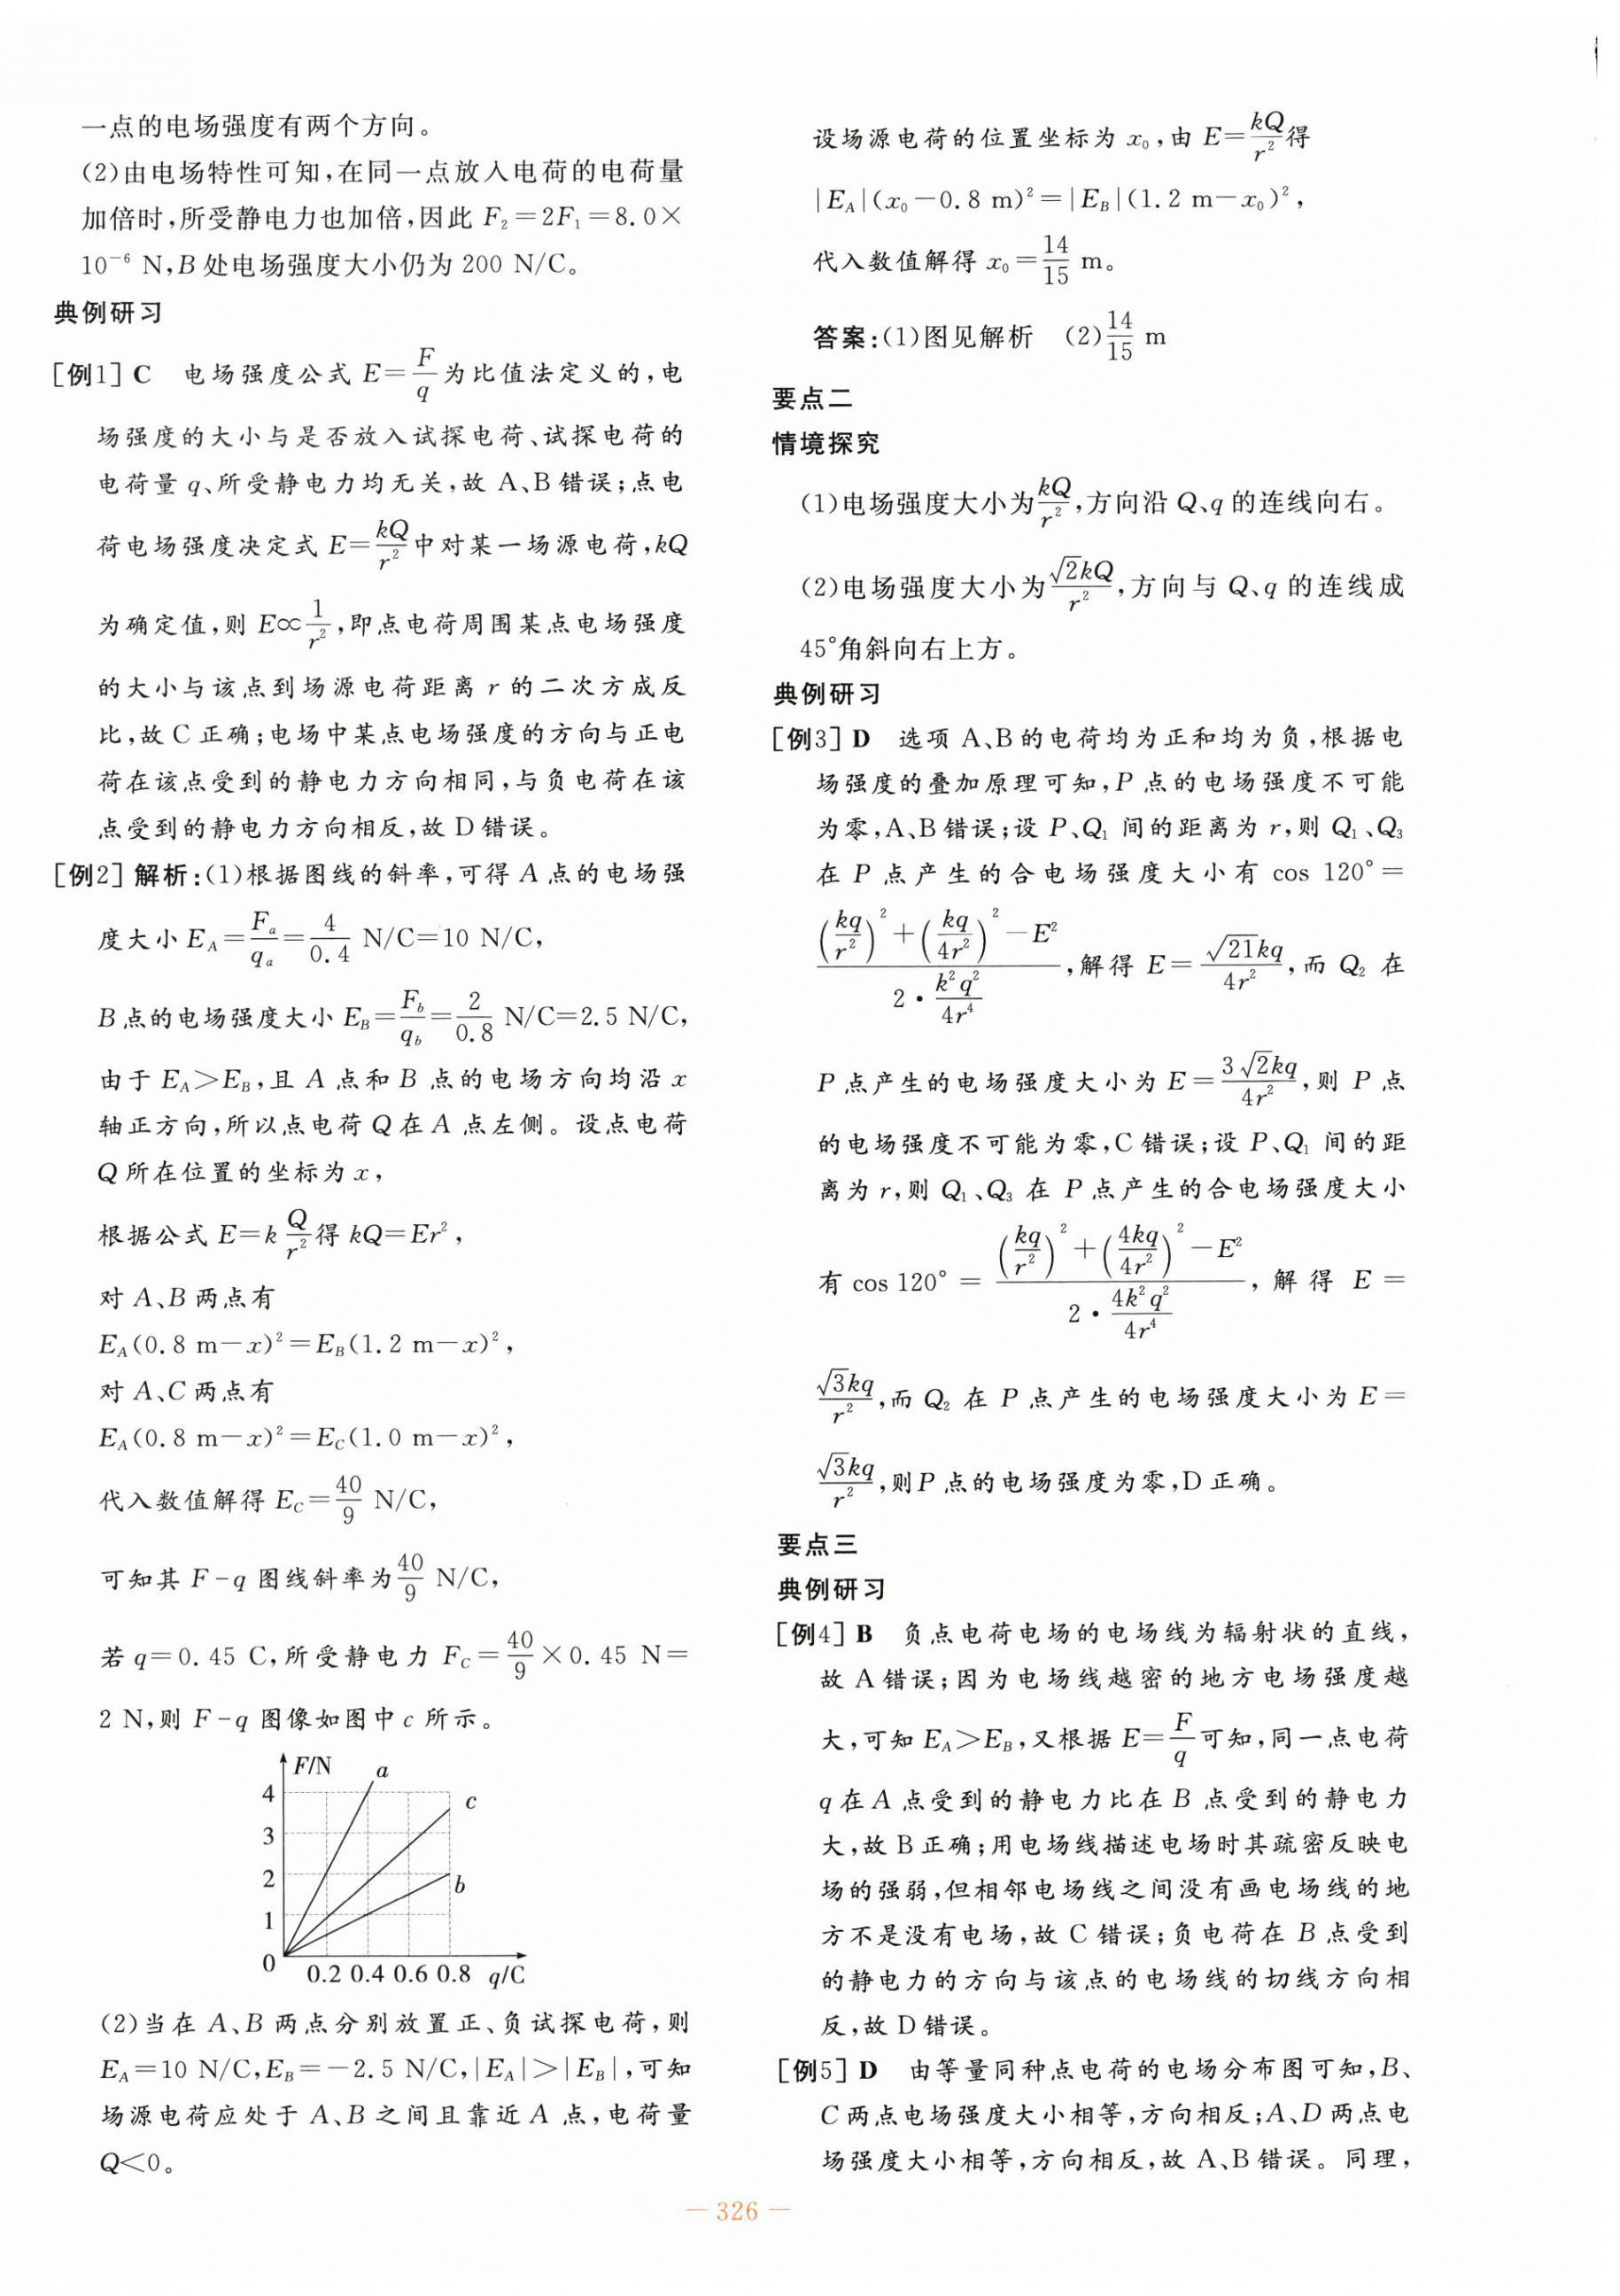 一点的电场强度有两个方向。
(2)由电场特性可知,在同一点放入电荷的电荷量
加倍时,所受静电力也加倍,因此 F₂=2F₁=8.0×
10⁻⁶ N,B处电场强度大小仍为 200 N/C。
典例研习
[例1] C 电场强度公式 E=F/q为比值法定义的,电
场强度的大小与是否放入试探电荷、试探电荷的
电荷量 q、所受静电力均无关,故 A、B错误;点电
荷电场强度决定式 E=kQ/r²中对某一场源电荷,kQ
为确定值,则 E∝1/r²,即点电荷周围某点电场强度
的大小与该点到场源电荷距离 r 的二次方成反
比,故 C 正确;电场中某点电场强度的方向与正电
荷在该点受到的静电力方向相同,与负电荷在该
点受到的静电力方向相反,故 D 错误。
[例2] 解析:(1)根据图线的斜率,可得 A 点的电场强
度大小 E_A=F_a/q_a=4/0.4 N/C=10 N/C,
B点的电场强度大小 E_B=F_b/q_b=2/0.8 N/C=2.5 N/C,
由于 E_A>E_B,且 A 点和 B 点的电场方向均沿 x
轴正方向,所以点电荷 Q 在 A 点左侧。设点电荷
Q 所在位置的坐标为 x,
根据公式 E=k Q/r²得 kQ=Er²,
对 A、B 两点有
E_A(0.8 m-x)²=E_B(1.2 m-x)²,
对 A、C 两点有
E_A(0.8 m-x)²=E_C(1.0 m-x)²,
代入数值解得 E_C=40/9 N/C,
可知其 F-q 图线斜率为40/9 N/C,
若 q=0.45 C,所受静电力 F_C=40/9×0.45 N=
2 N,则 F-q 图像如图中 c 所示。
F/N
a
4
c
3
2
b
1
0
0.2 0.4 0.6 0.8 q/C
(2)当在 A、B 两点分别放置正、负试探电荷,则
E_A=10 N/C,E_B=-2.5 N/C,|E_A|>|E_B|,可知
场源电荷应处于 A、B 之间且靠近 A 点,电荷量
Q<0。
设场源电荷的位置坐标为 x₀,由 E=kQ/r²得
|E_A|(x₀-0.8 m)²=|E_B|(1.2 m-x₀)²,
代入数值解得 x₀=14/15 m。
答案:(1)图见解析 (2)14/15 m
要点二
情境探究
(1)电场强度大小为kQ/r²,方向沿 Q、q 的连线向右。
(2)电场强度大小为√2kQ/r²,方向与 Q、q 的连线成
45°角斜向右上方。
典例研习
[例3] D 选项 A、B的电荷均为正和均为负,根据电
场强度的叠加原理可知,P 点的电场强度不可能
为零,A、B错误;设 P、Q₁ 间的距离为 r,则 Q₁、Q₃
在 P 点产生的合电场强度大小有 cos 120°=
((kq/r²)²+(kq/4r²)²-E²)/(2·k²q²/4r⁴),解得 E=√21kq/4r²,而 Q₂ 在
P 点产生的电场强度大小为 E=3√2kq/4r²,则 P 点
的电场强度不可能为零,C错误;设 P、Q₁ 间的距
离为 r,则 Q₁、Q₃ 在 P 点产生的合电场强度大小
有 cos 120°=((kq/r²)²+(4kq/4r²)²-E²)/(2·4k²q²/4r⁴),解得 E=
√3kq/r²,而 Q₂ 在 P 点产生的电场强度大小为 E=
√3kq/r²,则P 点的电场强度为零,D 正确。
要点三
典例研习
[例4] B 负点电荷电场的电场线为辐射状的直线,
故 A 错误;因为电场线越密的地方电场强度越
大,可知 E_A>E_B,又根据 E=F/q可知,同一点电荷
q 在 A 点受到的静电力比在 B 点受到的静电力
大,故 B 正确;用电场线描述电场时其疏密反映电
场的强弱,但相邻电场线之间没有画电场线的地
方不是没有电场,故 C 错误;负电荷在 B 点受到
的静电力的方向与该点的电场线的切线方向相
反,故 D 错误。
[例5] D 由等量同种点电荷的电场分布图可知,B、
C 两点电场强度大小相等,方向相反;A、D 两点电
场强度大小相等,方向相反,故 A、B 错误。同理,
— 326 —